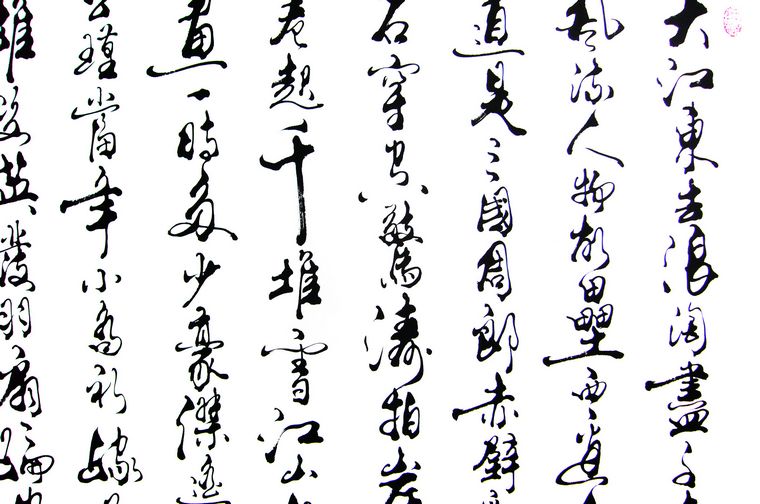 大江東去浪淘盡千
風流人物故壘西邊人
道是三國周郎赤壁
石穿空驚濤拍岸
卷起千堆雪江山
畫一時多少豪傑遙
公瑾當年小喬初嫁
雄姿英發羽扇綸